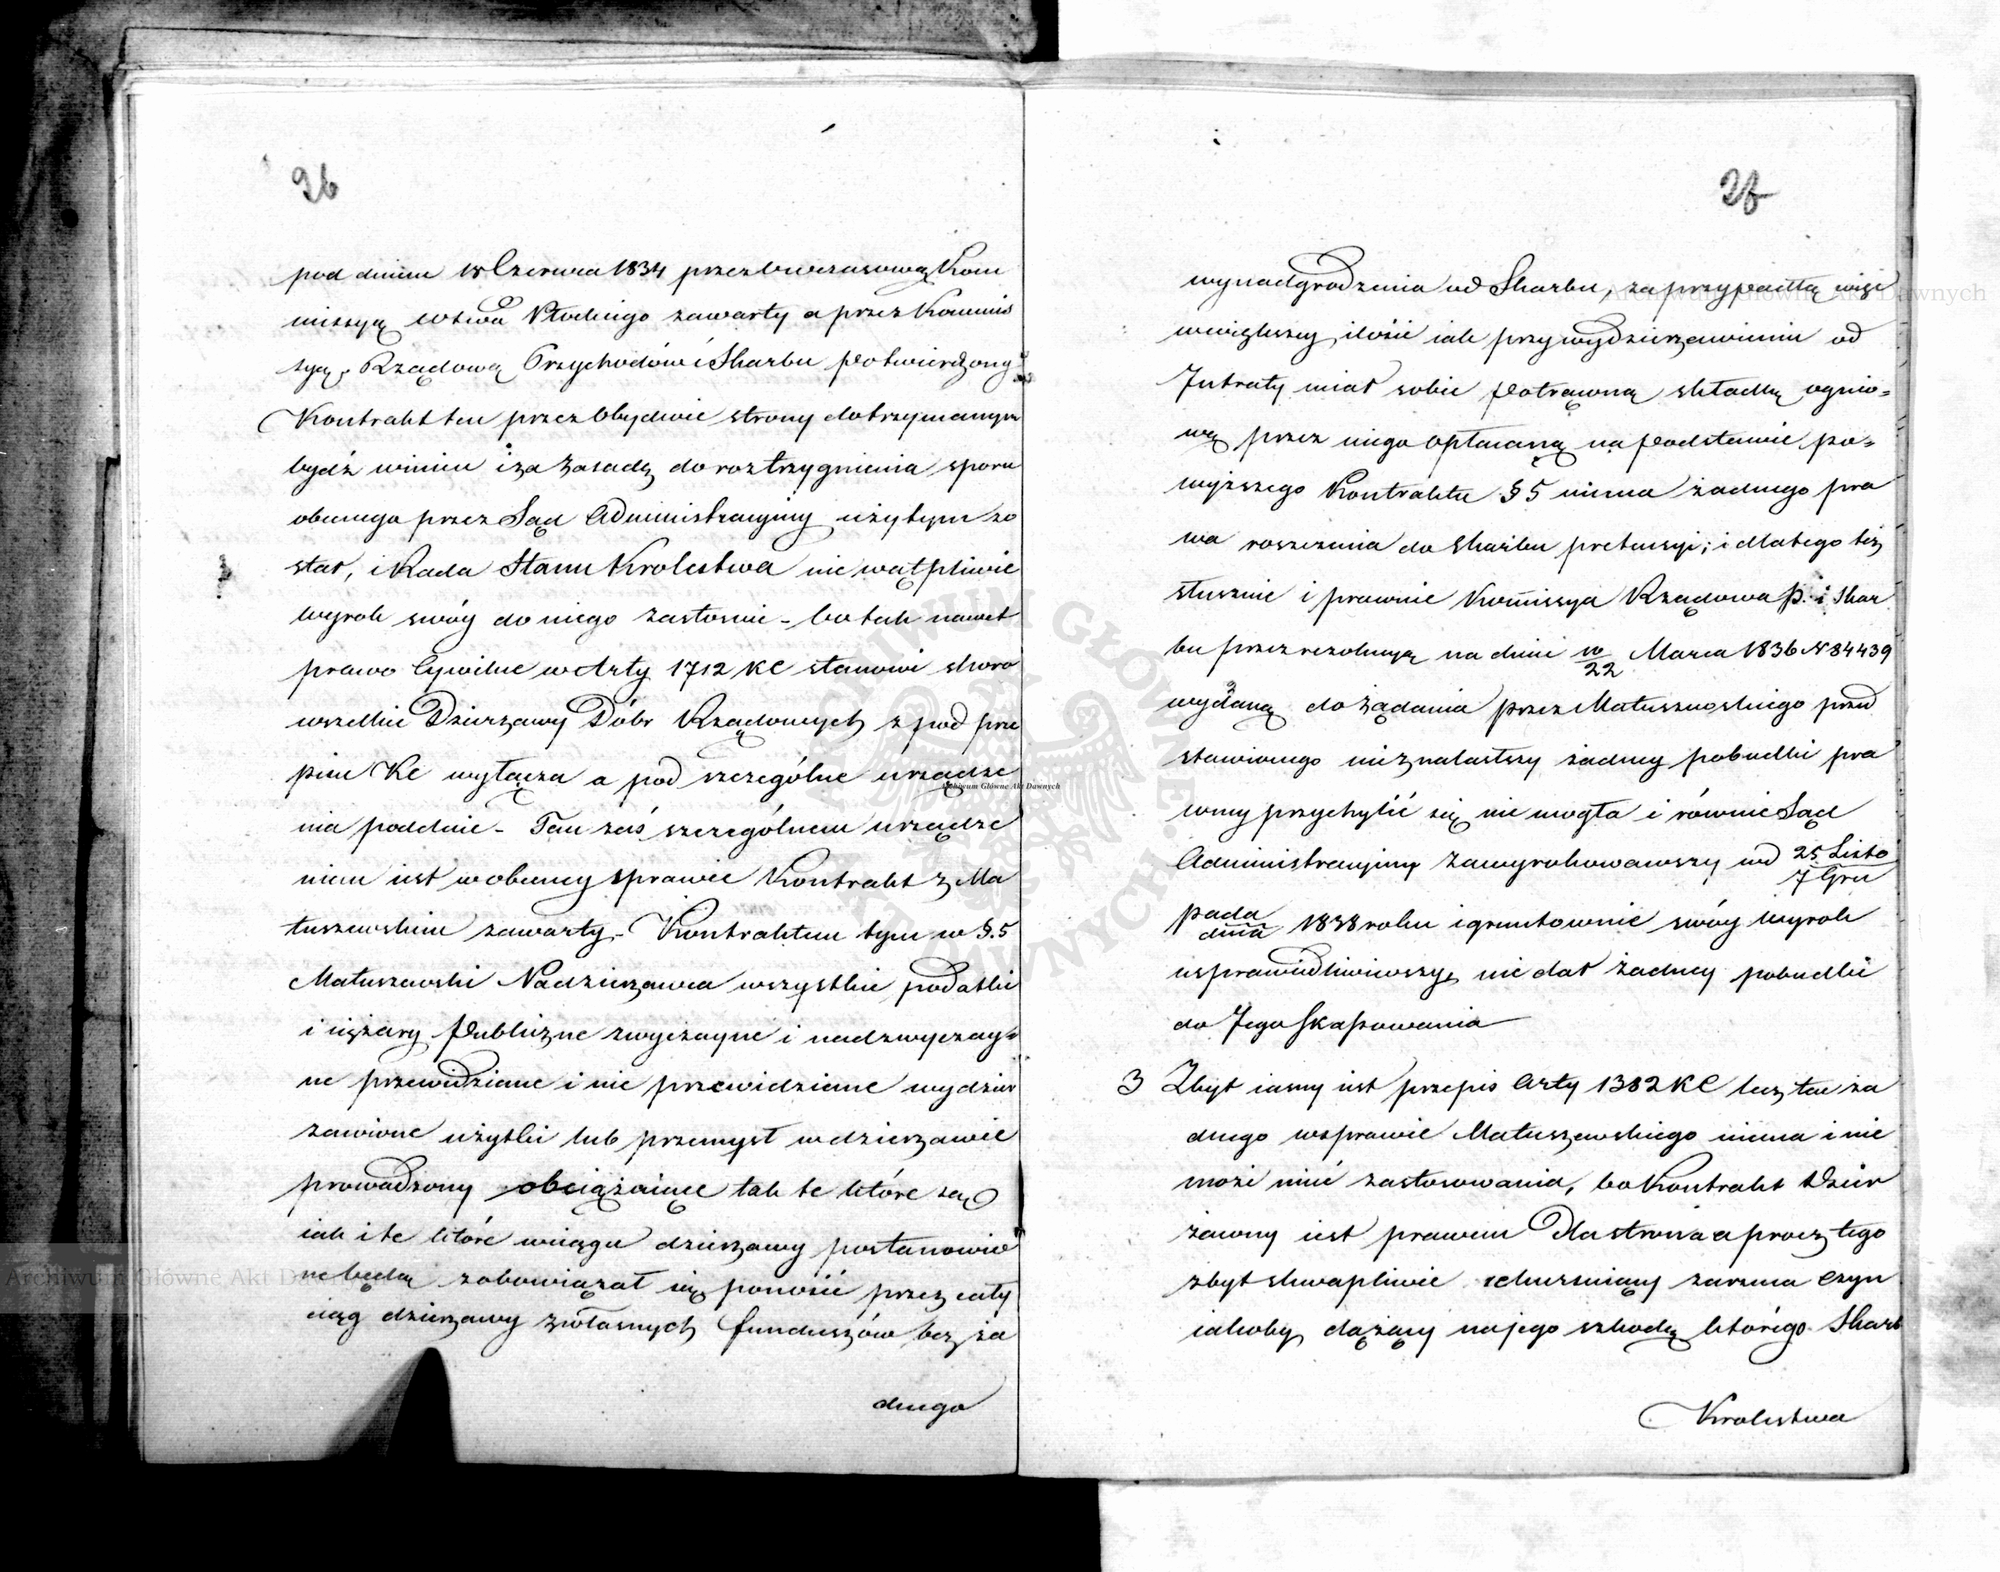 26
pod dniem 18 Czerwca 1834 przez bwczasową Kom
missyą Wztwa Płockiego zawarty a przez Kommis
syą Rządową Przychodów i Skarbu potwierdzony
Kontrakt ten przez Obydwie strony dotrzymanym
bydź winien i za Zasadę do roztrzygnienia sporu
obecnego przez Sąd Administracyjny użytym zo
stał, i Rada Stanu Krolestwa nie wątpliwie
wyrok swóy do niego zastosuie - bo tak nawet
prawo Cywilne w Arty 1712 KC stanowi skoro
wszelkie Dzierzawy Dóbr Rządowych z pod prze
pisu KC wyłącza a pod szczególne urządze
nia poddaie - Tem zaś szczególnem urządze
niem iest w obecney sprawie Kontrakt z Ma
tuszewskim zawarty - Kontraktem tym w §. 5
Matuszewski Nadzierzawca wszystkie podatki
i ciężary publiczne zwyczayne i nadzwyczay=
ne przewidziane i nie przewidziane wydzier
zawione użytki lub przemysł w dzierzawie
prowadzony obciążaiące tak te które są
iak i te które wciągu dzierzawy postanowio
ne będą zobowiązał się ponosić przez cały
ciąg dzierzawy z własnych funduszów bez ża
dnego
27
wynadgrodzenia od Skarbu, za przypadłą więc
wwiększey ilości iak przy wydzierzawieniu od
Intraty miał sobie potrąconą składkę ognio=
wą przez niego opłacaną na podstawie po=
wyższego Kontraktu § 5 niema żadnego pra
wa roszczenia do Skarbu pretensyi; i dlatego też
słusznie i prawnie Kommissya Rządowa P. i Skar
bu przez rezolucyą na dniu 10/22 Marca 1836 N 84439
wydaną do żądania przez Matuszewskiego przed
stawionego nieznalazłszy żadney pobudki pra
wney przychylić się nie mogła i równie Sąd
Administracyjny zawyrokowawszy wd 25 Listo
7 Gru
pada
dnia 1838 roku i gruntownie swóy Wyrok
usprawiedliwiwszy, nie dał żadney pobudki
do Jego skassowania
3 Zbyt iasny iest przepis Arty 1382 KC lecz ten ża
dnego wsprawie Matuszewskiego niema i nie
może mieć zastosowania, bo Kontrakt Dzier
żawny iest prawem Dla stron a a procz tego
zbyt skwapliwie zarzuca Czyn
iakoby dążący na jego szkodę którego Skarb
Krolestwa
Archiwum Główne Akt Dawnych